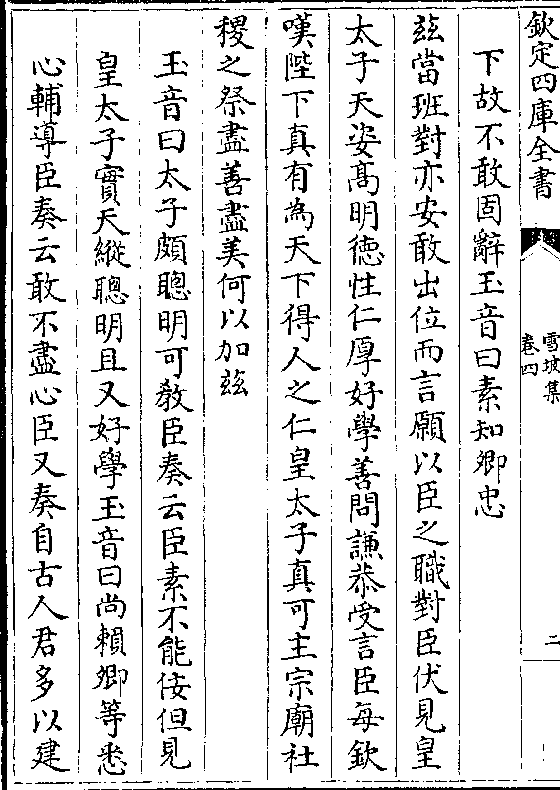 欽定四庫全書
雪坡集
卷四
二
下故不敢固辭玉音曰素知卿忠
玆當班對亦安敢出位而言願以臣之職對臣伏見皇
太子天姿高明德性仁厚好學善問謙恭受言臣每欽
嘆陛下真有為天下得人之仁皇太子真可主宗廟社
稷之祭盡善盡美何以加玆
玉音曰太子頗聰明可教臣奏云臣素不能佞但見
皇太子實天縱聰明且又好學玉音曰尚賴卿等悉
心輔導臣奏云敢不盡心臣又奏自古人君多以建